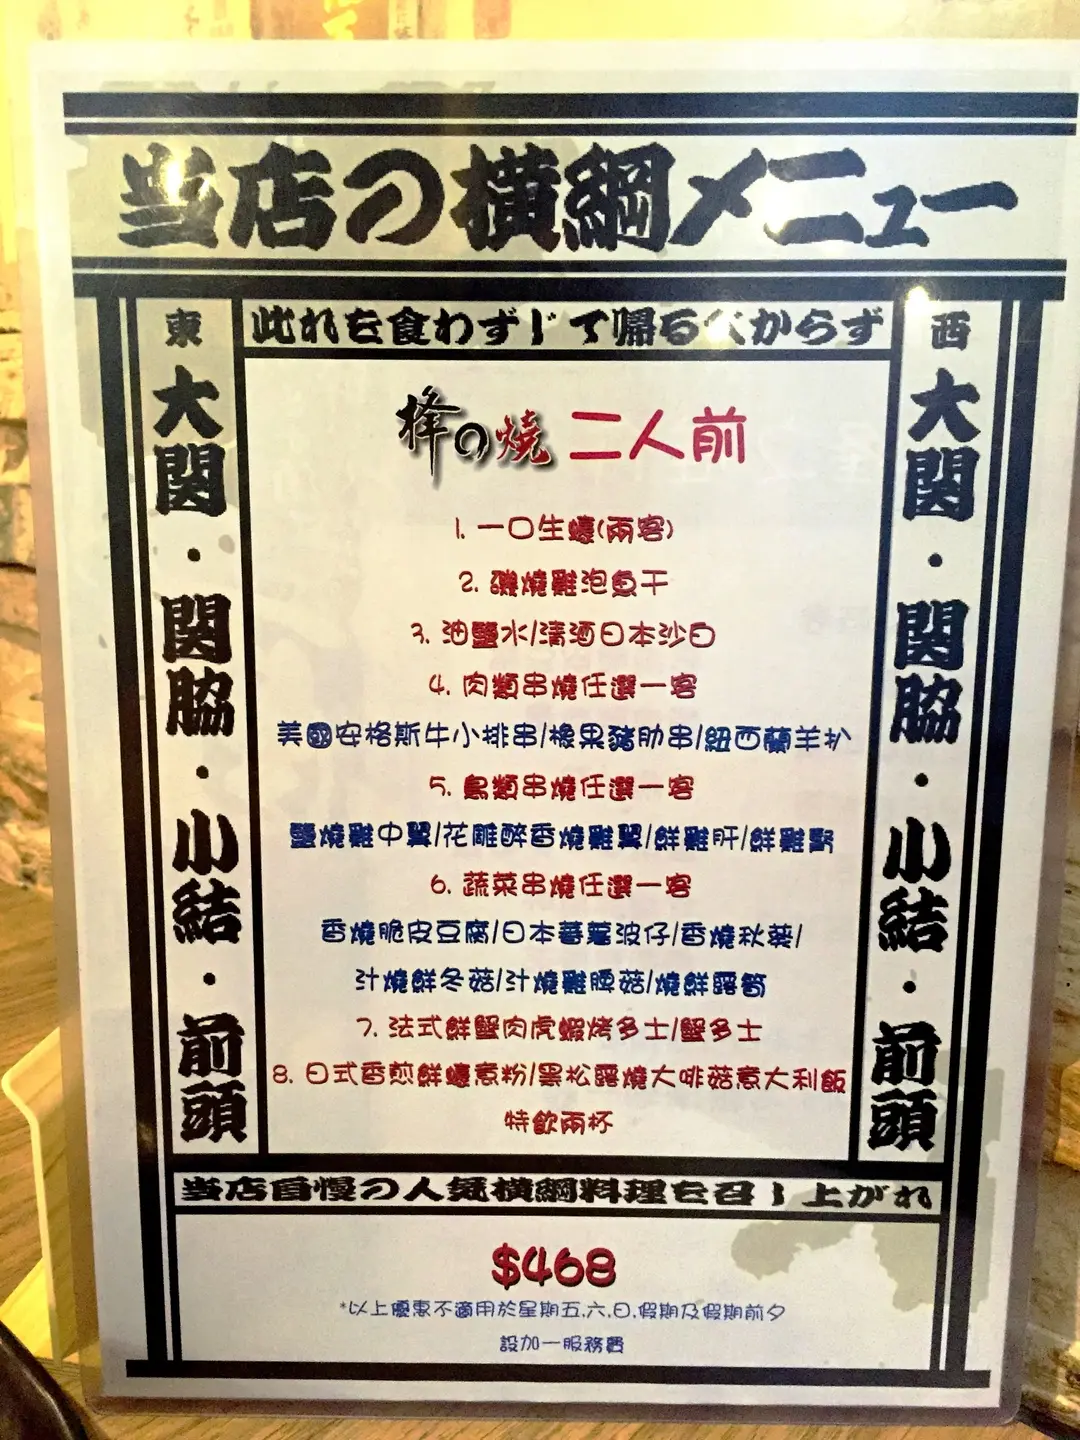 当店の横綱メニュー
東
此れを食わずして帰るべからず
西
大関・関脇・小結・前頭
大関・関脇・小結・前頭
の燒 二人前
1. 一口生蠔(兩客)
2. 磯燒雞泡魚干
3. 油鹽水/清酒日本沙白
4. 肉類串燒任選一客
美國安格斯牛小排串/橡果豬肋串/紐西蘭羊扒
5. 鳥類串燒任選一客
鹽燒雞中翼/花雕醉香燒雞翼/鮮雞肝/鮮雞腎
6. 蔬菜串燒任選一客
香燒脆皮豆腐/日本蕃薯波仔/香燒秋葵/
汁燒鮮冬菇/汁燒雞脾菇/燒鮮露筍
7. 法式鮮蟹肉虎蝦烤多士/蟹多士
8. 日式香煎鮮蠔煮粉/黑松露燒大啡菇意大利飯
特飲兩杯
当店自慢の人気横綱料理を召し上がれ
$468
*以上優惠不適用於星期五,六,日,假期及假期前夕
設加一服務費